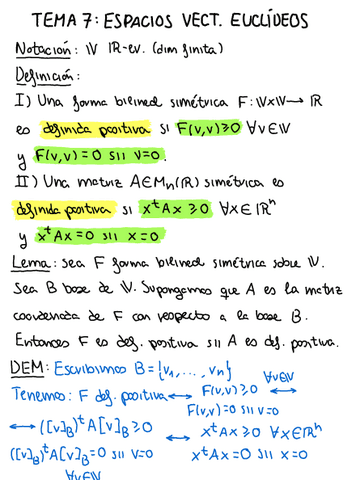 TEMA 7: ESPACIOS VECT. EUCLÍDEOS
Notación: V ℝ-ev. (dim finita)
Definición:
I) Una forma bilineal simétrica F: V×V → ℝ
es definida positiva si F(v,v) ≥ 0 ∀v∈V
y F(v,v) = 0 sii v=0.
II) Una matriz A∈Mn(ℝ) simétrica es
definida positiva si xᵗAx ≥ 0 ∀x∈ℝⁿ
y xᵗAx = 0 sii x=0
Lema: Sea F forma bilineal simétrica sobre V.
Sea B base de V. Supongamos que A es la matriz
coordenada de F con respecto a la base B.
Entonces F es def. positiva sii A es def. positiva.
DEM: Escribimos B = {v₁, ..., vn} ∀v∈V
Tenemos: F def. positiva ⟷ F(v,v) ≥ 0 ⟷
F(v,v) = 0 sii v=0
⟷ ([v]B)ᵗA[v]B ≥ 0 ⟷ xᵗAx ≥ 0 ∀x∈ℝⁿ
([v]B)ᵗA[v]B = 0 sii v=0 xᵗAx = 0 sii x=0
∀v∈V